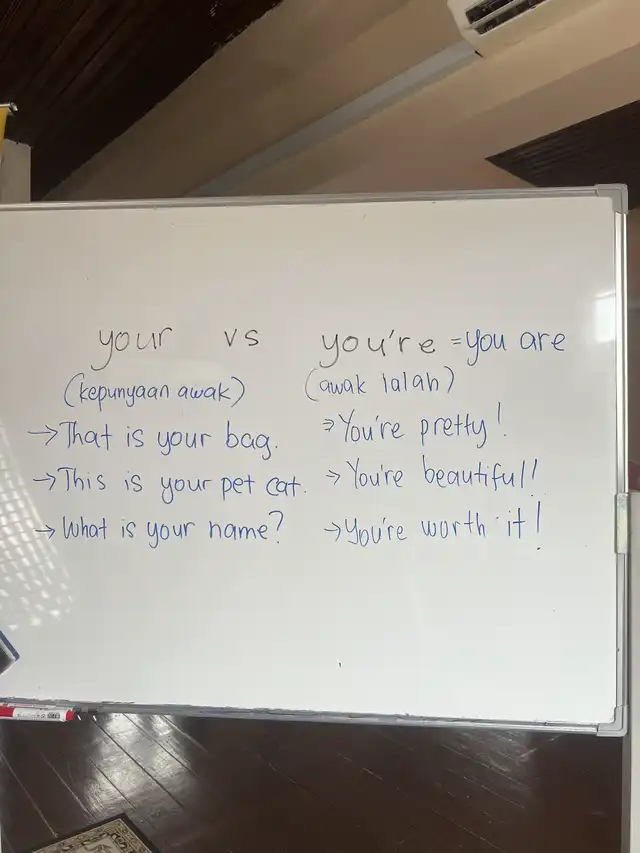 your vs you're = you are
(kepunyaan awak) (awak ialah)
→ That is your bag. ⇒ You're pretty!
→ This is your pet cat. → You're beautiful!
→ What is your name? → You're worth it!